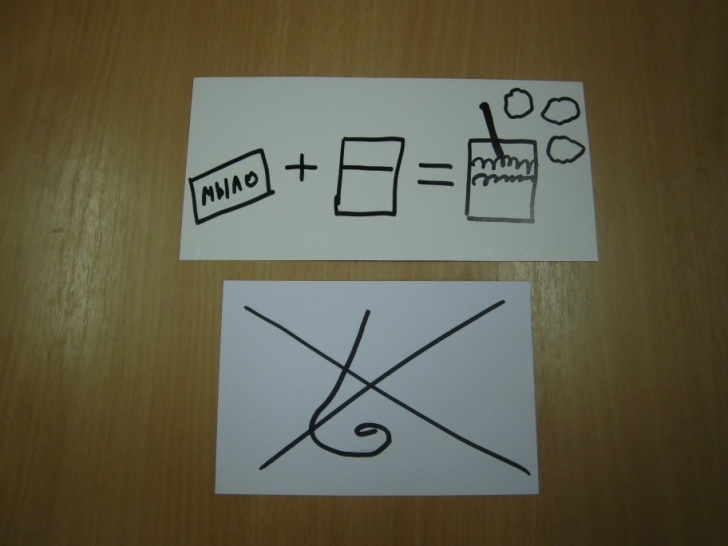 МЫЛО + =